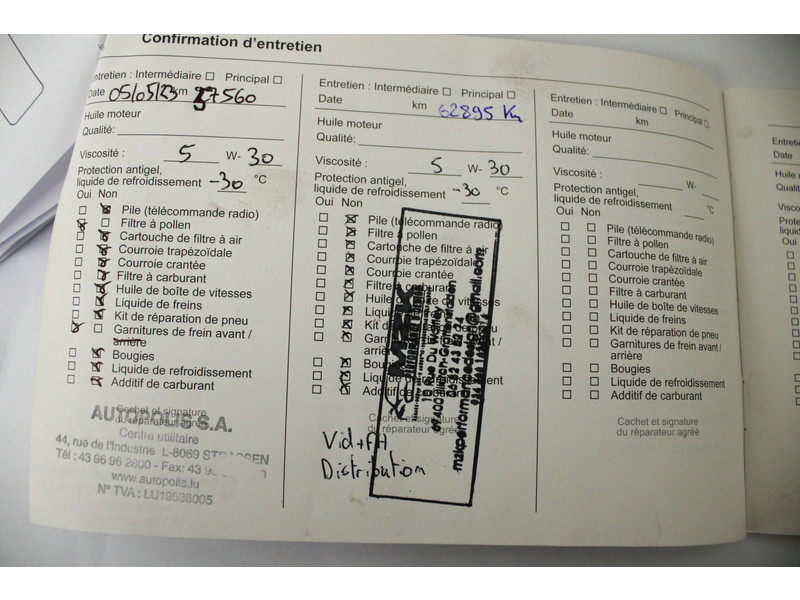 Confirmation d'entretien
Entretien : Intermédiaire Principal
Date 05/05/23 km 27560
Huile moteur
Qualité:
Viscosité : 5 W- 30
Protection antigel,
liquide de refroidissement -30 °C
Oui Non
Pile (télécommande radio)
Filtre à pollen
Cartouche de filtre à air
Courroie trapézoïdale
Courroie crantée
Filtre à carburant
Huile de boîte de vitesses
Liquide de freins
Kit de réparation de pneu
Garnitures de frein avant /
arrière
Bougies
Liquide de refroidissement
Additif de carburant
Cachet et signature
du réparateur agréé
AUTOPOLIS S.A.
Centre utilitaire
44, rue de l'Industrie L-8069 STRASSEN
Tél : 43 96 96 2800 - Fax: 43 9
www.autopolis.lu
N° TVA : LU19538005
Entretien : Intermédiaire Principal
Date km 62895 Km
Huile moteur
Qualité:
Viscosité : 5 W- 30
Protection antigel,
liquide de refroidissement -30 °C
Oui Non
Pile (télécommande radio)
Filtre à pollen
Cartouche de filtre à air
Courroie trapézoïdale
Courroie crantée
Filtre à carburant
Huile de boîte de vitesses
Liquide
Kit de réparation de pneu
Garnitures de frein avant /
arrière
Bougies
Liquide de refroidissement
Additif de carburant
Cachet et signature
du réparateur agréé
Vid+FH
Distribution
Entretien : Intermédiaire Principal
Date km
Huile moteur
Qualité:
Viscosité : W-
Protection antigel,
liquide de refroidissement °C
Oui Non
Pile (télécommande radio)
Filtre à pollen
Cartouche de filtre à air
Courroie trapézoïdale
Courroie crantée
Filtre à carburant
Huile de boîte de vitesses
Liquide de freins
Kit de réparation de pneu
Garnitures de frein avant /
arrière
Bougies
Liquide de refroidissement
Additif de carburant
Cachet et signature
du réparateur agréé